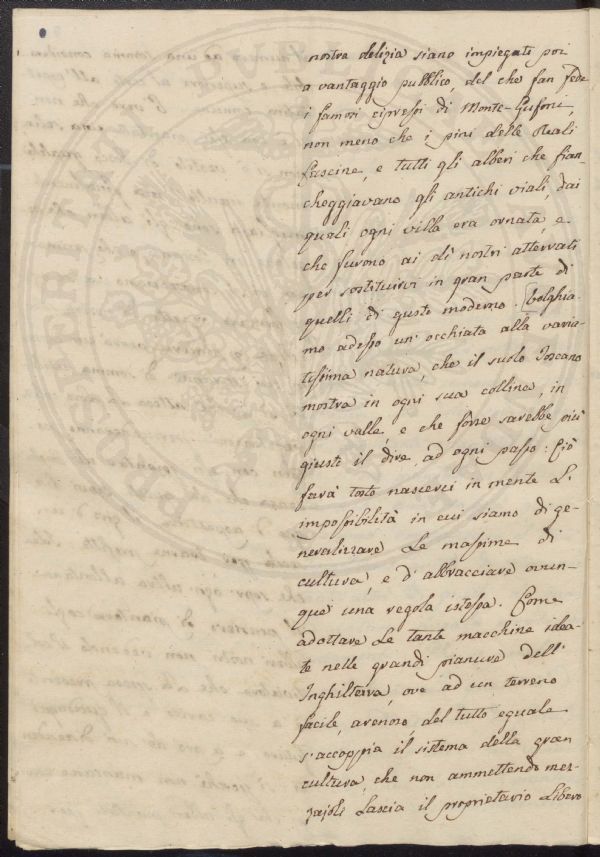 nostra delizia siano impiegati poi
a vantaggio pubblico, del che fan fede
i famosi cipressi di Monte-Gufoni,
non meno che i pini delle Reali
Cascine, e tutti gli alberi che fian-
cheggiavano gli antichi viali, dai
quali ogni villa era ornata, e
che furono ai dì nostri atterrati
per sostituirvi in gran parte di
quelli di gusto moderno. Volghia-
mo adesso un' occhiata alla varia-
tissima natura, che il suolo Toscano
mostra in ogni sua collina, in
ogni valle, e che forse sarebbe più
giusto il dire, ad ogni passo: Ciò
farà tosto nascerci in mente l'
impossibilità in cui siamo di ge-
neralizzare le massime di
cultura, e d' abbracciare ovun-
que una regola istessa. Come
adottare le tante macchine idea-
te nelle grandi pianure dell'
Inghilterra, ove ad un terreno
facile, arenoso del tutto eguale
s'accoppia il sistema della gran
cultura, che non ammettendo mez-
zajoli lascia il proprietario libero